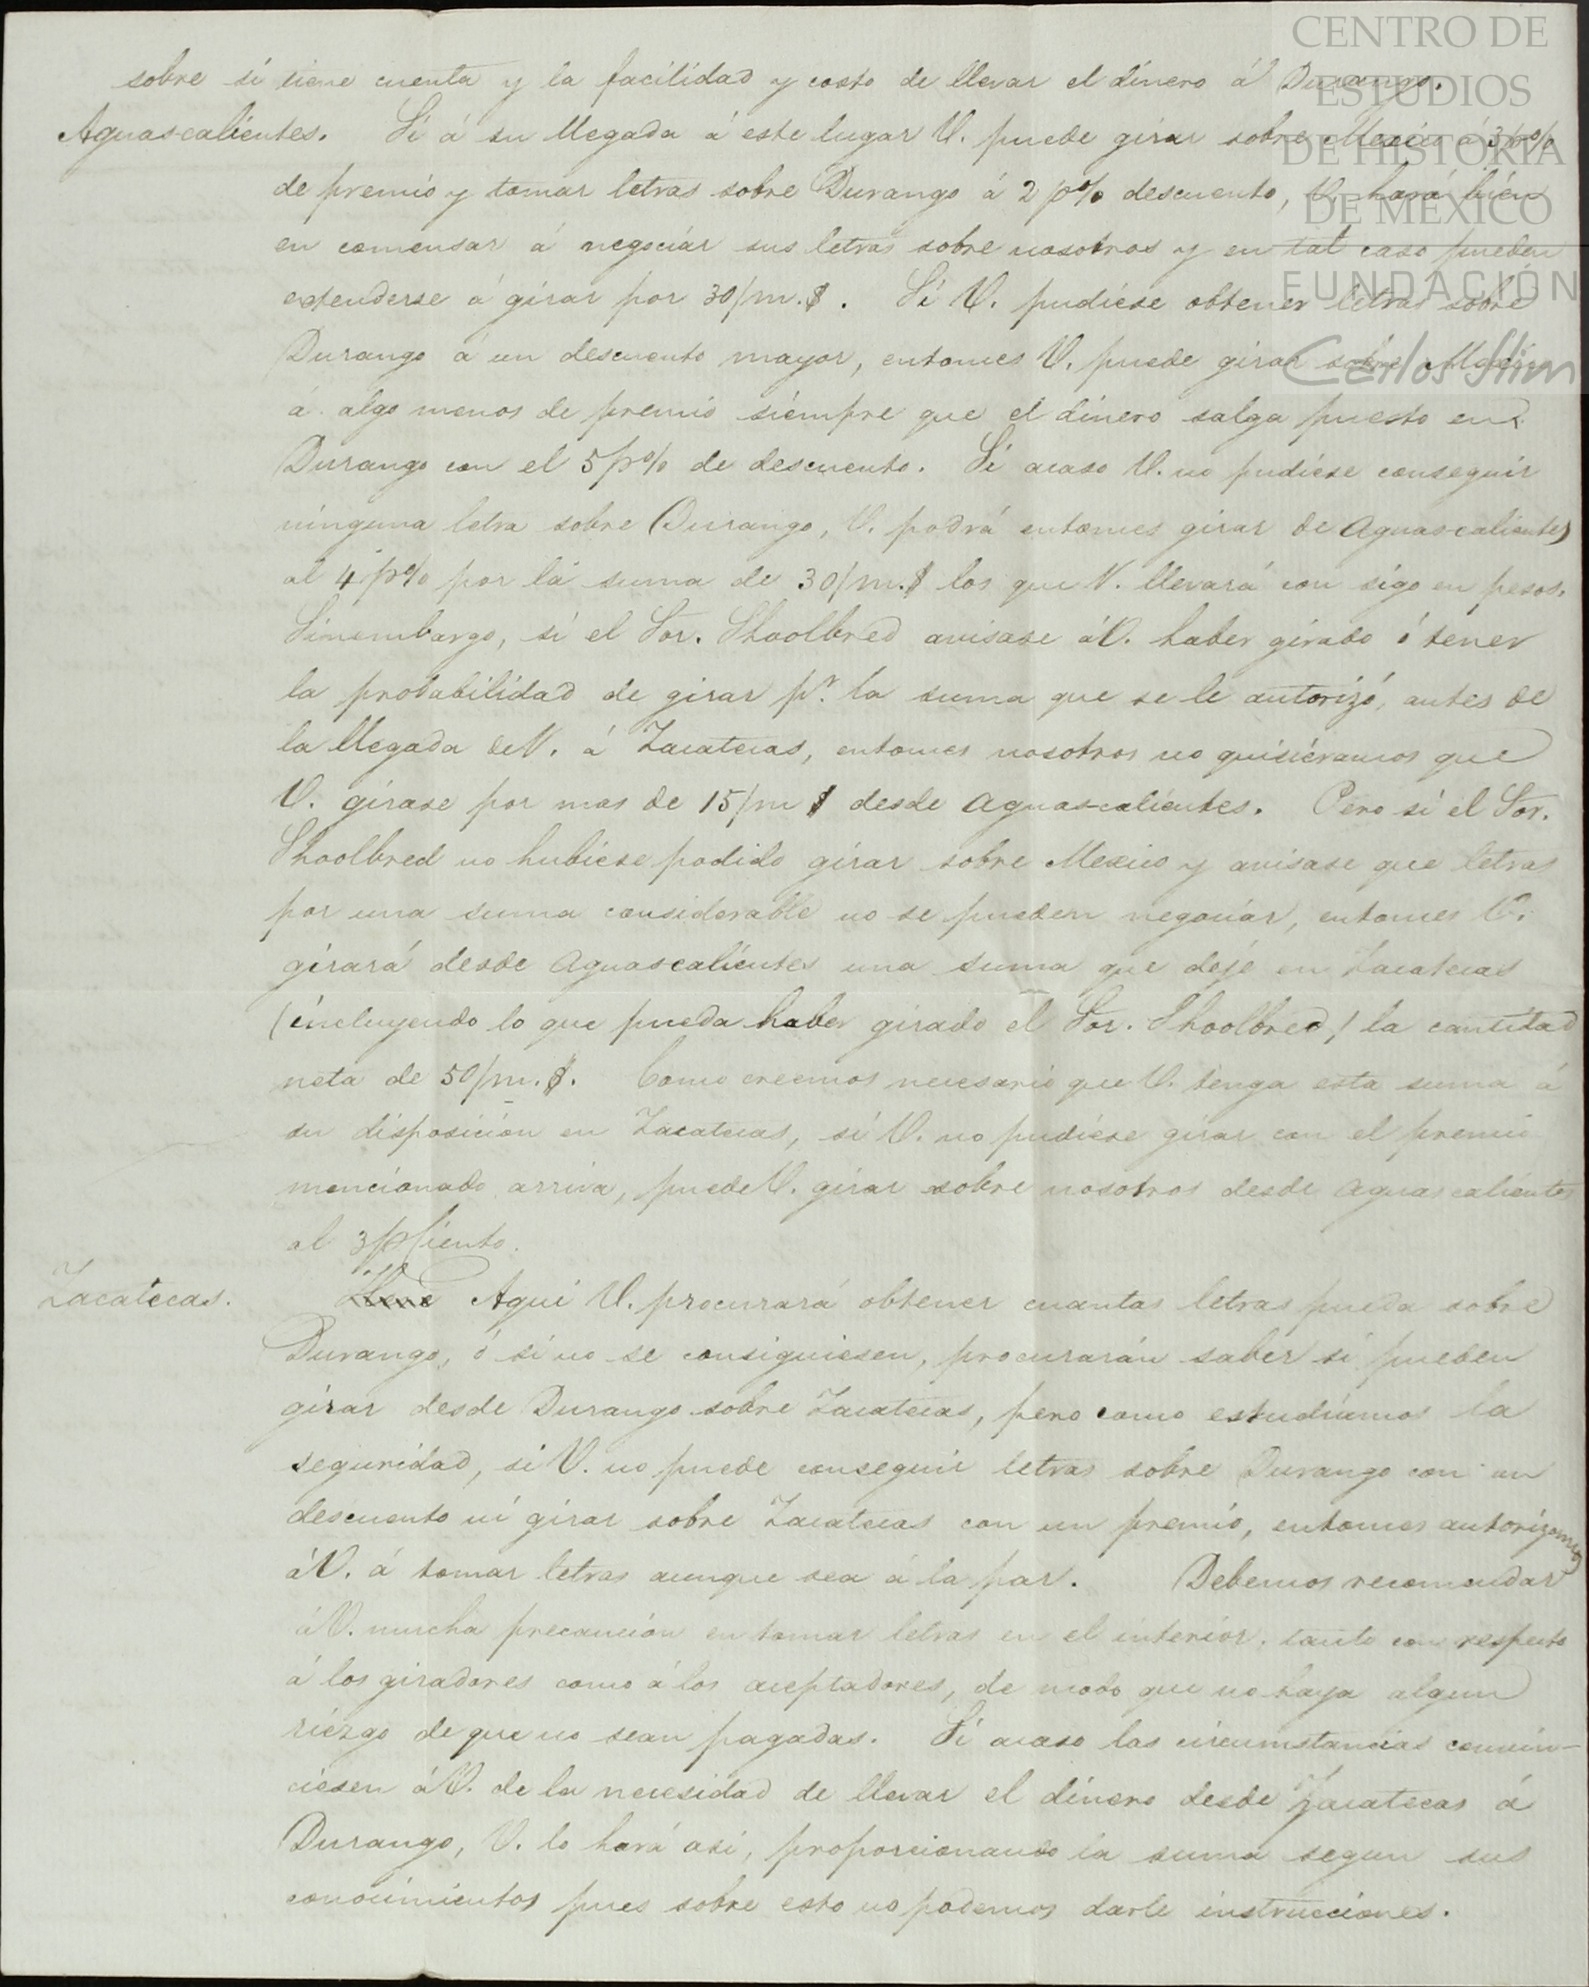 sobre sí tiene cuenta y la facilidad y costo de llevar el dínero á Durango.
Aguascalíentes. Sí á su llegada á este lugar V. puede gírar sobre Mexico á 3 p%
de premío y tomar letras sobre Durango á 2 p% descuento, V. hará bíen
en comensar á negocíar sus letras sobre nosotros y en tal caso pueden
estenderse á gírar por 30/m.$. Sí V. pudíese obtener letras sobre
Durango á un descuento mayor, entonces V. puede gírar sobre Mexico
á algo menos de premío síempre que el dínero salga puesto en
Durango con el 5 p% de descuento. Sí acaso V. no pudíese conseguir
nínguna letra sobre Durango, V. podrá entonces gírar de Aguascalíentes
al 4 p% por la suma de 30/m.$ los que V. llevará con sígo en pesos.
Sínembargo, sí el Sor. Shoolbred avísase á V. haber gírado ó tener
la probabílídad de gírar pr. la suma que se le autorízó, antes de
la llegada de V. á Zacatecas, entonces nosotros no quísíéramos que
V. gírase por mas de 15/m $ desde Aguascalíentes. Pero sí el Sor.
Shoolbred no hubíese podído gírar sobre Mexico y avísase que letras
por una suma consíderable no se pueden negocíar, entonces V.
gírará desde Aguascalíentes una suma que dejé en Zacatecas
(íncluyendo lo que pueda haber gírado el Sor. Shoolbred,) la cantídad
neta de 50/m.$. Como creemos necesarío que V. tenga esta suma á
su dísposícíón en Zacatecas, sí V. no pudíese gírar con el premío
mencíonado arríva, puede V. gírar sobre nosotros desde Aguascalíentes
al 3 p Cíento.
Zacatecas. Aquí V. procurará obtener cuantas letras pueda sobre
Durango, ó sí no se consiguíesen, procurarán saber sí pueden
gírar desde Durango sobre Zacatecas, pero como estudíamos la
segurídad, sí V. no puede conseguír letras sobre Durango con un
descuento ní gírar sobre Zacatecas con un premío, entonces autorízamos
á V. á tomar letras aunque sea á la par. Debemos recomendar
á V. mucha precaucíón en tomar letras en el interíor, tanto con respecto
á los gíradores como á los aceptadores, de modo que no haya algun
ríezgo de que no sean pagadas. Sí acaso las círcumstancías conven-
cíesen á V. de la necesídad de llevar el dínero desde Zacatecas á
Durango, V. lo hará así, proporcíonando la suma segun sus
conocímíentos pues sobre esto no podemos darle ínstruccíones.
CENTRO DE
ESTUDIOS
DE HISTORIA
DE MÉXICO
FUNDACIÓN
Carlos Slim